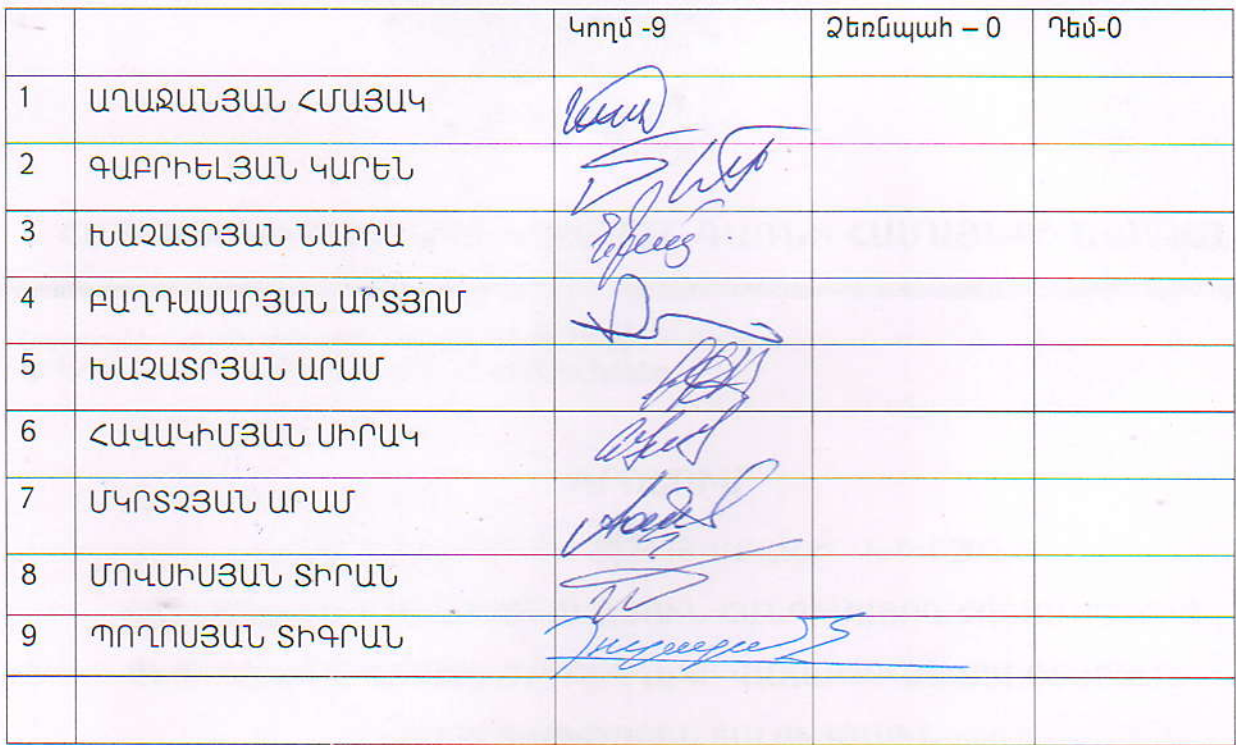 Կողմ -9 Ձեռնպահ – 0 Դեմ-0
1 ԱՂԱՋԱՆՅԱՆ ՀՄԱՅԱԿ
2 ԳԱԲՐԻԵԼՅԱՆ ԿԱՐԵՆ
3 ԽԱՉԱՏՐՅԱՆ ՆԱԻՐԱ
4 ԲԱՂԴԱՍԱՐՅԱՆ ԱՐՏՅՈՄ
5 ԽԱՉԱՏՐՅԱՆ ԱՐԱՄ
6 ՀԱՎԱԿԻՄՅԱՆ ՍԻՐԱԿ
7 ՄԿՐՏՉՅԱՆ ԱՐԱՄ
8 ՄՈՎՍԻՍՅԱՆ ՏԻՐԱՆ
9 ՊՈՂՈՍՅԱՆ ՏԻԳՐԱՆ